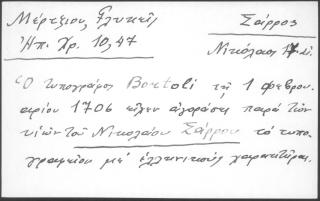 Μέρτζιος, Γλυκεῖς
Σάρρος
Ἠπ. Χρ. 10, 47
Νικόλαος
Ὁ τυπογράφος Bortoli τῇ 1 φεβρου-
αρίου 1706 εἶχεν ἀγοράσει παρὰ τῶν
υἱῶν τοῦ Νικολάου Σάρρου τὸ τυπο-
γραφεῖον μὲ ἑλληνικοὺς χαρακτῆρας.